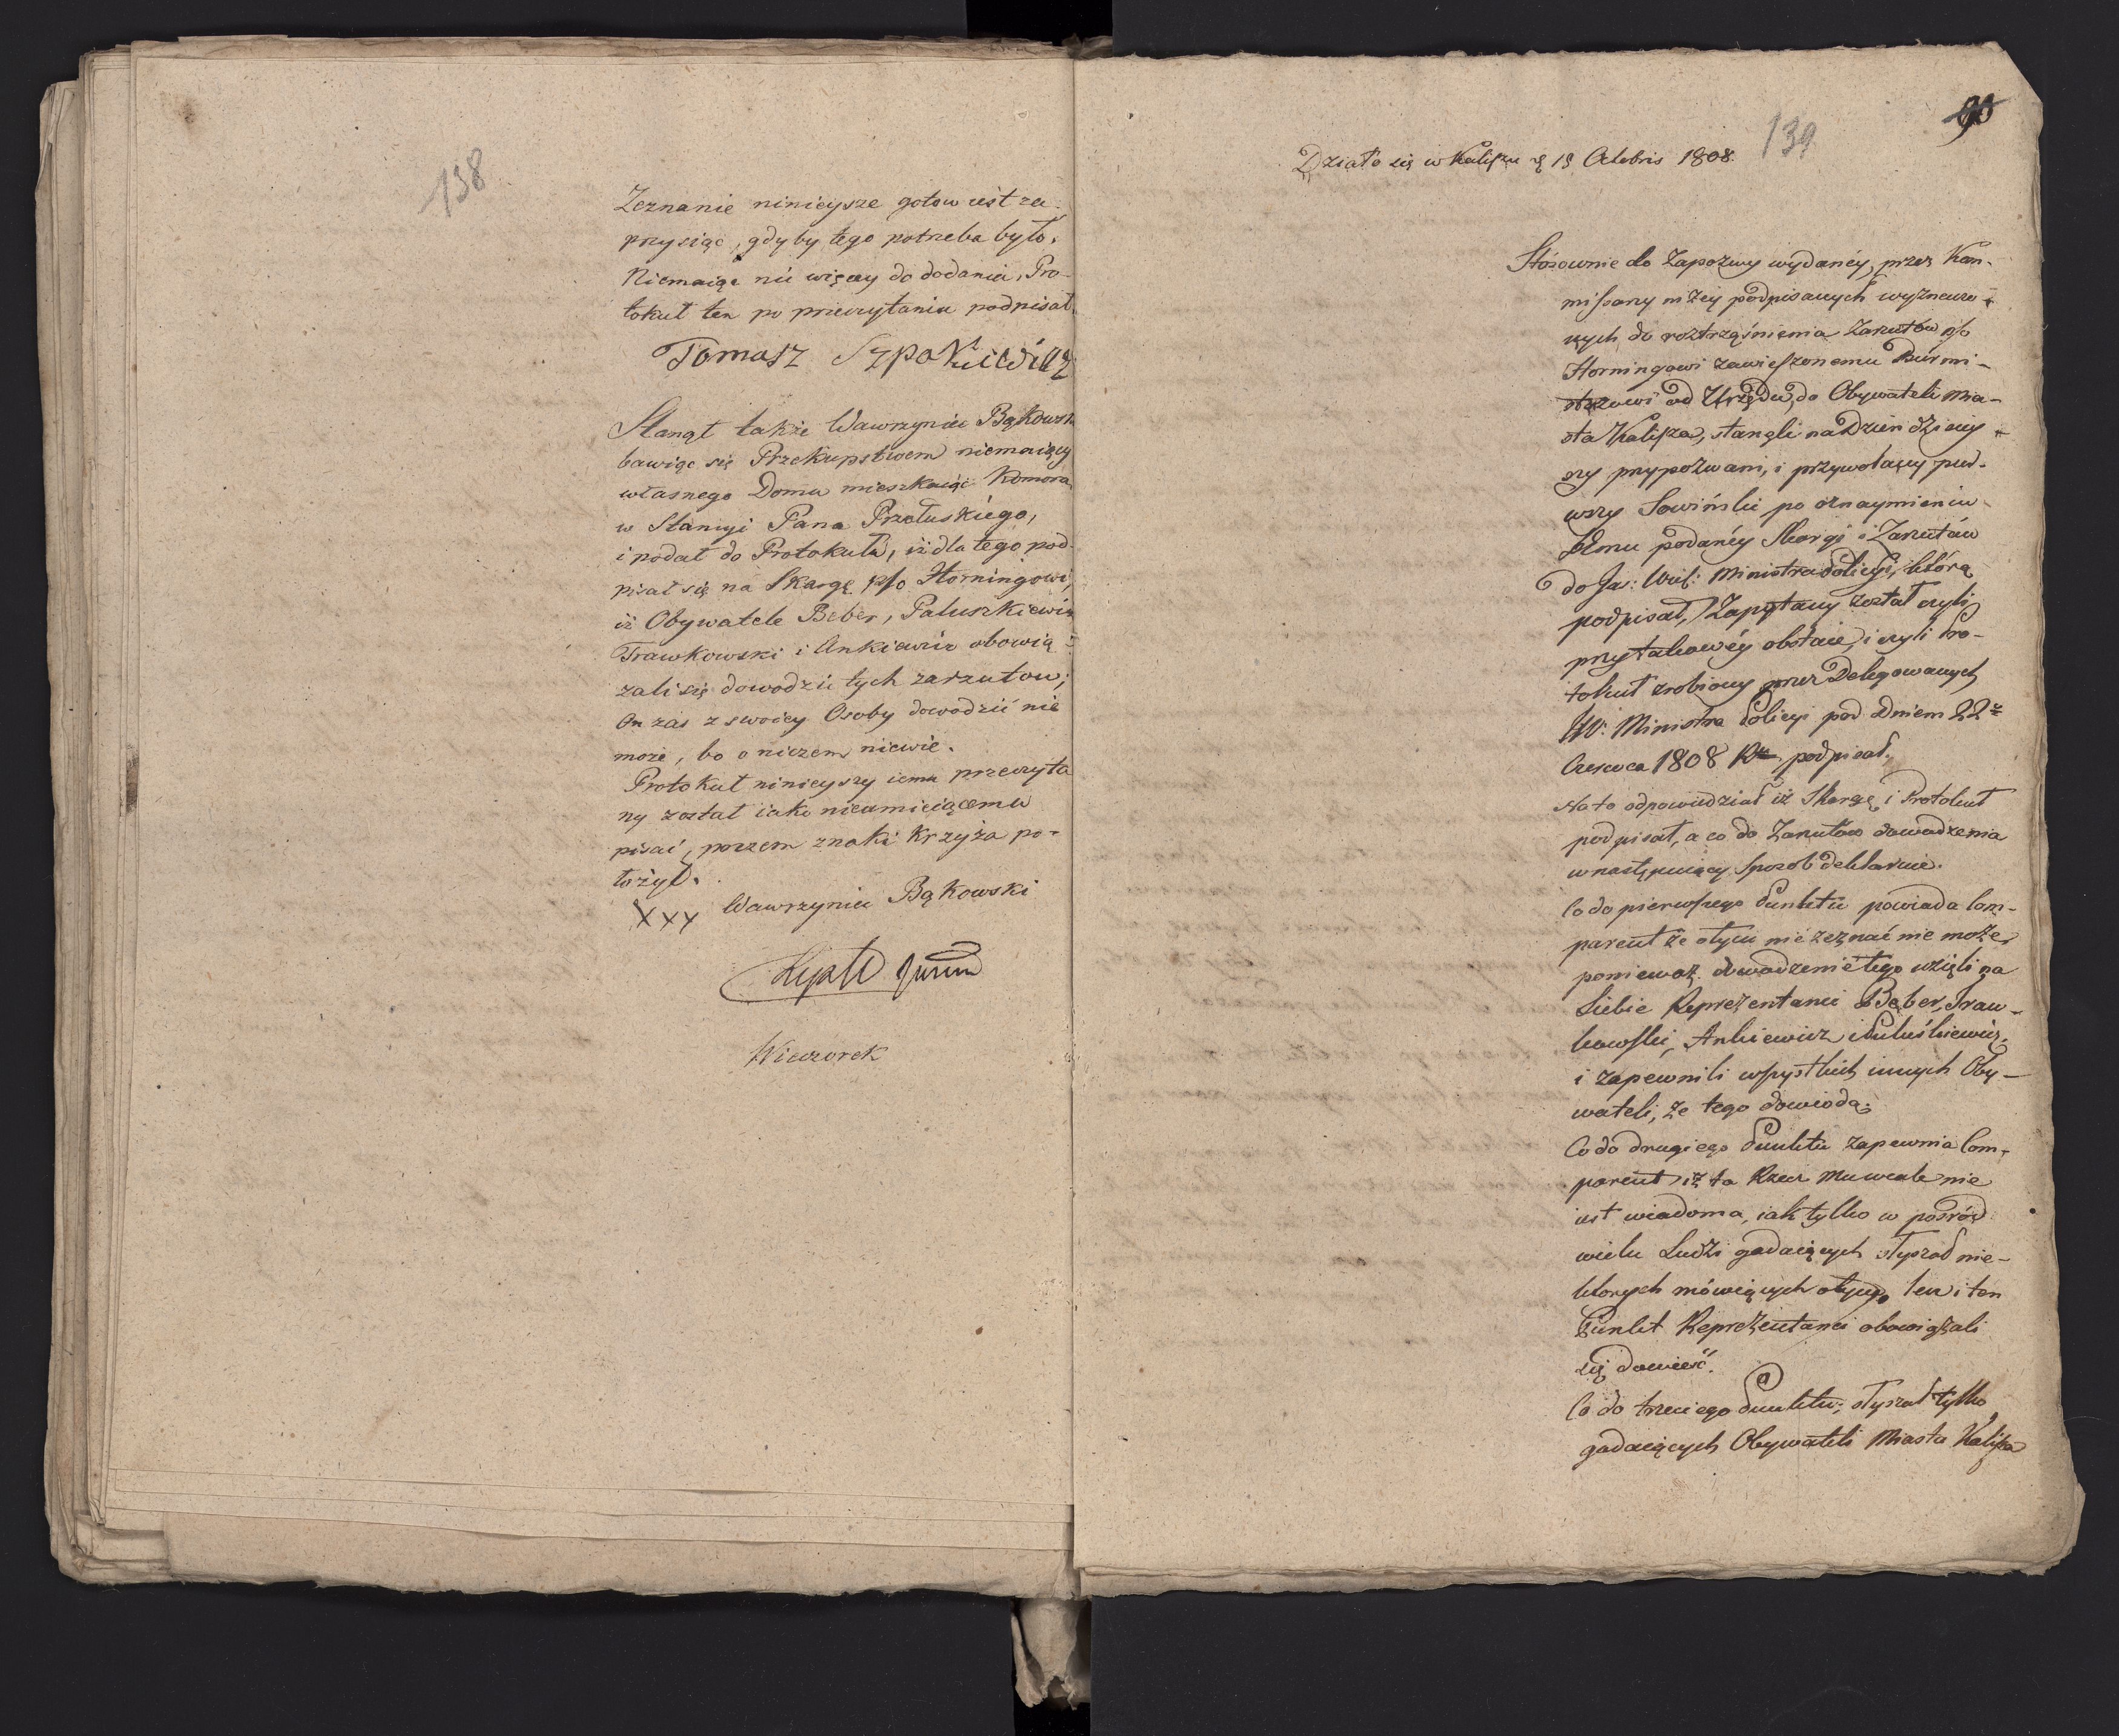 138
Zeznanie ninieysze gotow iest za-
przysiąc, gdyby tego potrzeba było.
Niemaiąc nic więcey do dodania, Pro-
tokuł ten po przeczytaniu podpisał.
Tomasz Szpakiewicz
Stanął także Wawrzyniec Bąkowski
bawiąc się Przekupstwem niemaiący
własnego Domu mieszkaiąc Komorą
w Stancyi Pana Przełuskiego,
i podał do Protokułu, iż dla tego pod-
pisał się na Skargę p/o Horningowi,
iż Obywatele Beber, Paluszkiewicz
Trawkowski i Ankiewicz obowią-
zali się dowodzić tych zarzutow;
On zaś z swoiey Osoby dowodzić nie
może, bo o niczem niewie.
Protokuł ninieyszy iemu przeczyta
ny został iako nieumieiącemu
pisać, poczem znaki krzyża po-
łożył.
XXX Wawrzyniec Bąkowski
Wieczorek
90
139
Działo się w Kaliszu d 19 Octobris 1808.
Stósownie do Zapozwy wydanéy, przez Kom-
missarzy niżey podpisanych wyznaczo-
nych do roztrząśnienia Zarzutów p/o
Horningowi zawieszonemu Burmi-
strzowi od Urzędu, do Obywateli Mia-
sta Kalisza, stanęli na Dzień dzisiey-
szy przypozwani, i przywołany
Sowiński po oznaymieniu
Jemu podanéy Skargi i Zarzutów
do Jas: Wiel: Ministra Policyi, którą
podpisał, Zapytany został czyli
przy takowéy obstaie, i czyli Pro-
tokuł zrobiony przez Delegowanych
JW: Ministra Policyi pod Dniem 22
Czerwca 1808 podpisał.
Na to odpowiedział iż Skargę i Protokuł
podpisał, a co do Zarzutów dowodzenia
w następuiący Sposob deklaruie.
Co do pierwszego Punktu powiada Com-
parent że o tym nic zeznać nie może
ponieważ dowodzenie tego wzięli na
Siebie Reprezentanci Beber, Traw-
kowski, Ankiewicz i Puluśkiewicz,
i zapewnili wszystkich innych Oby-
wateli, że tego dowiodą.
Co do drugiego Punktu zapewnia Com-
parent, iż ta Rzecz Mu wcale nie
iest wiadoma, iak tylko w posród
wielu Ludzi gadaiących słyszał nie-
ktorych mówiących o tym, lecz i ten
Punkt Reprezentanci obowiązali
się dowieść.
Co do trzeciego Punktu, słyszał tylko
gadaiących Obywateli Miasta Kalisza